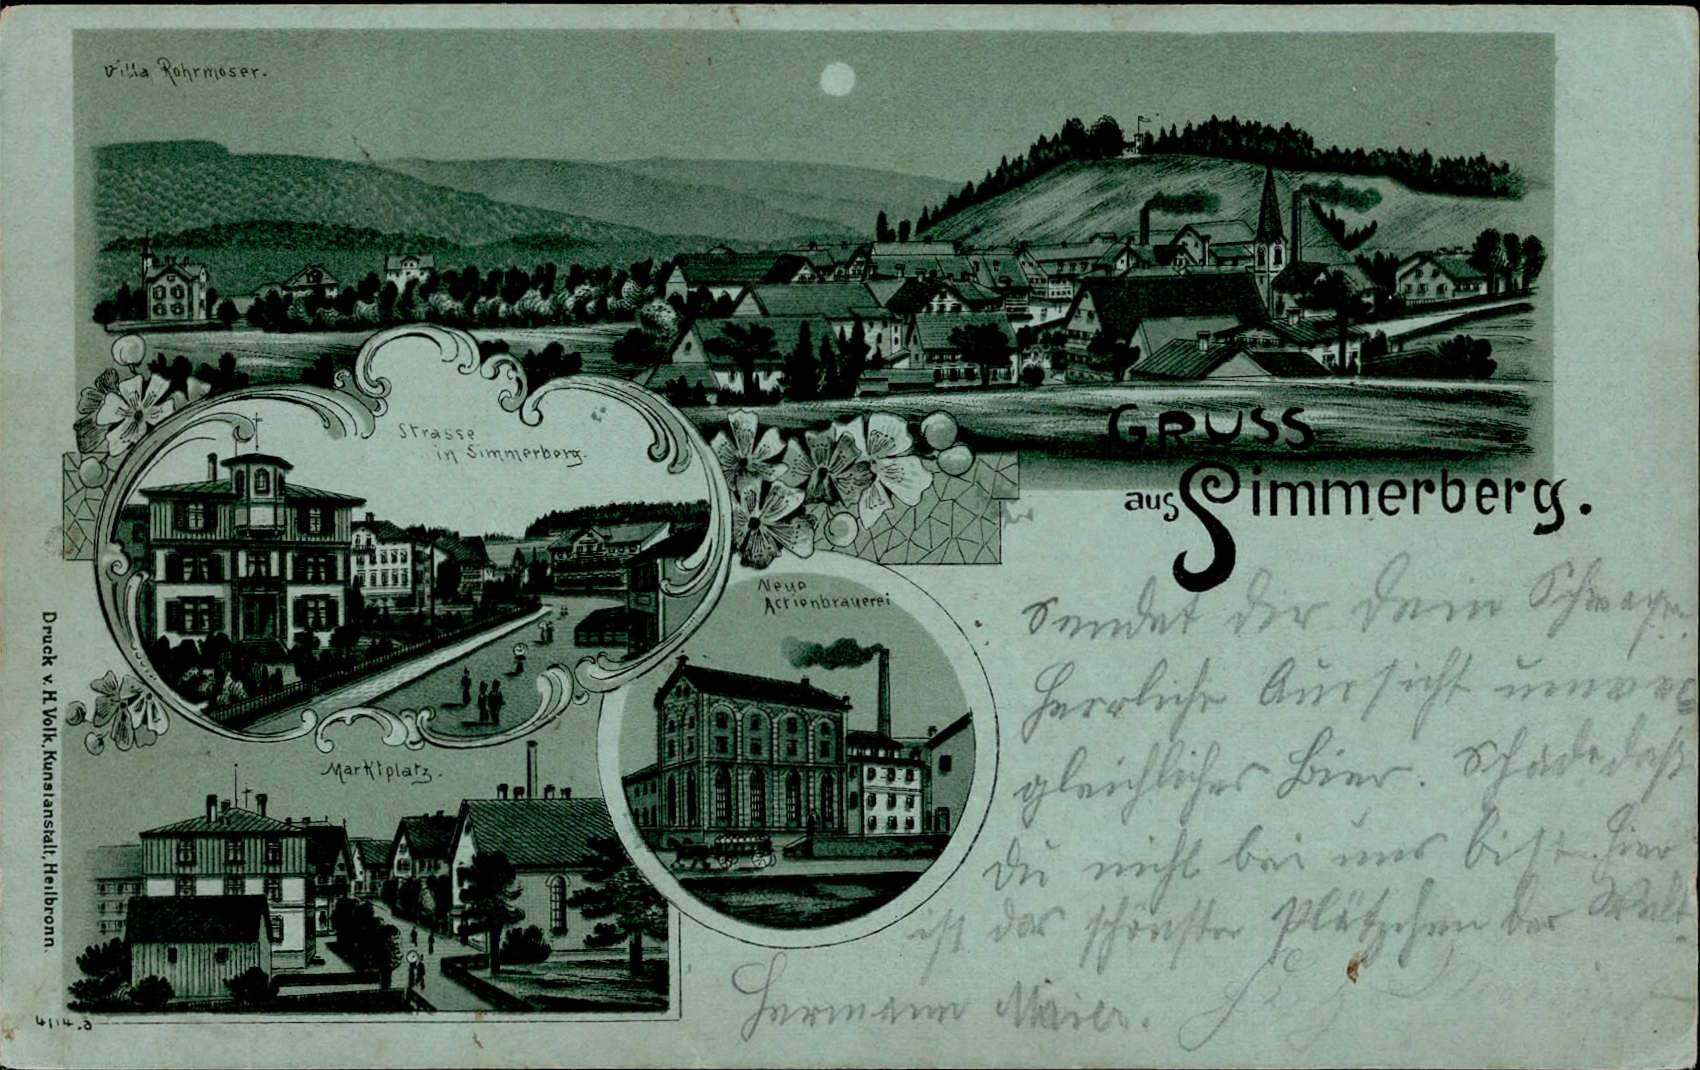 Villa Rohrmoser.
GRUSS
aus Simmerberg.
Strasse
in Simmerberg.
Neue
Actienbrauerei
Marktplatz.
Druck v. H. Volk, Kunstanstalt, Heilbronn.
4114.a
Sendet dir dein Schwager.
Herrliche Aussicht unver
gleichliches Bier. Schade daß
Du nicht bei uns bist. Hier
ist das schönste Plätzchen der Welt.
Hermann Maier.